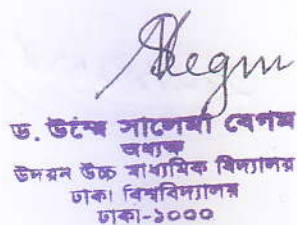 Begum
ড. উম্মে সালেমা বেগম
অধ্যক্ষ
উদয়ন উচ্চ মাধ্যমিক বিদ্যালয়
ঢাকা বিশ্ববিদ্যালয়
ঢাকা-১০০০